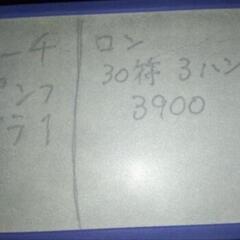 ーチ
ンフ
ラ1
ロン
30符 3ハン
3900